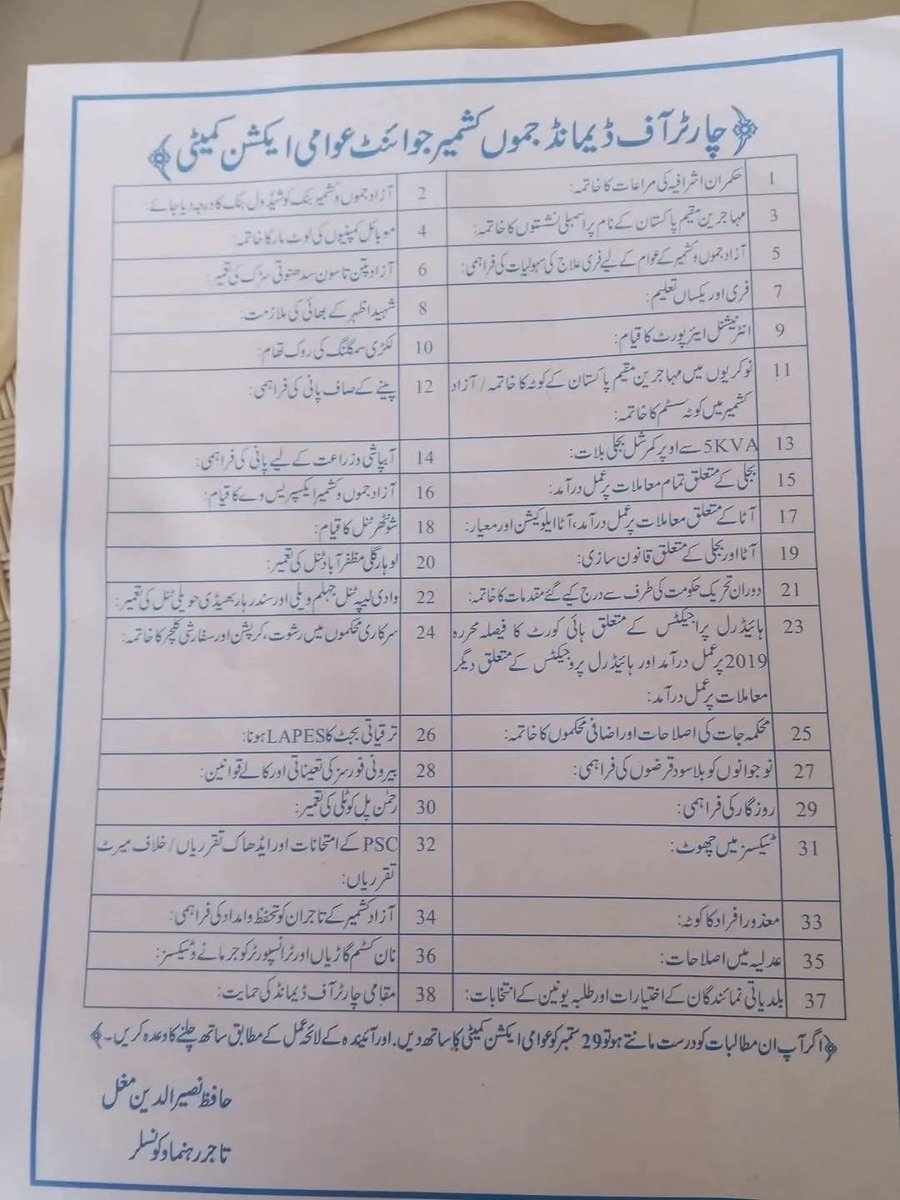 چارٹر آف ڈیمانڈ جموں کشمیر جوائنٹ عوامی ایکشن کمیٹی
1 حکمران اشرافیہ کی مراعات کا خاتمہ:
2 آزاد جموں و کشمیر بنک کو شیڈول بنک کا درجہ دیا جائے:
3 مہاجرین مقیم پاکستان کے نام پر اسمبلی نشستوں کا خاتمہ:
4 موبائل کمپنیوں کی لوٹ مار کا خاتمہ:
5 آزاد جموں و کشمیر کے عوام کے لیے فری علاج کی سہولیات کی فراہمی:
6 آزاد پتن تا سون سدھنوتی سڑک کی تعمیر:
7 فری اور یکساں تعلیم:
8 شہید اظہر کے بھائی کی ملازمت:
9 انٹرنیشنل ایئرپورٹ کا قیام:
10 لکڑی سمگلنگ کی روک تھام:
11 نوکریوں میں مہاجرین مقیم پاکستان کے کوٹہ کا خاتمہ / آزاد
کشمیر میں کوٹہ سسٹم کا خاتمہ:
12 پینے کے صاف پانی کی فراہمی:
13 5KVA سے اوپر کمرشل بجلی بلات:
14 آبپاشی و زراعت کے لیے پانی کی فراہمی:
15 بجلی کے متعلق تمام معاملات پر عمل درآمد:
16 آزاد جموں و کشمیر ایکسپریس وے کا قیام:
17 آٹا کے متعلق معاملات پر عمل درآمد، آٹا ایلوکیشن اور معیار:
18 شونٹھر ٹنل کا قیام:
19 آٹا اور بجلی کے متعلق قانون سازی:
20 لوہار گلی مظفرآباد ٹنل کی تعمیر:
21 دوران تحریک حکومت کی طرف سے درج کیے گئے مقدمات کا خاتمہ:
22 وادی لیپہ ٹنل جہلم ویلی اور سندر ہار بھیڈی حویلی ٹنل کی تعمیر:
23 ہائیڈرل پراجیکٹس کے متعلق ہائی کورٹ کا فیصلہ محررہ
2019 پر عمل درآمد اور ہائیڈرل پروجیکٹس کے متعلق دیگر
معاملات پر عمل درآمد:
24 سرکاری محکموں میں رشوت، کرپشن اور سفارشی کلچر کا خاتمہ:
25 محکمہ جات کی اصلاحات اور اضافی محکموں کا خاتمہ:
26 ترقیاتی بجٹ کا LAPES ہونا:
27 نوجوانوں کو بلا سود قرضوں کی فراہمی:
28 بیرونی فورسز کی تعیناتی اور کالے قوانین:
29 روزگار کی فراہمی:
30 رحمٰن پل کوٹلی کی تعمیر:
31 ٹیکسز میں چھوٹ:
32 PSC کے امتحانات اور ایڈھاک تقرریاں / خلاف میرٹ
تقرریاں:
33 معذور افراد کا کوٹہ:
34 آزاد کشمیر کے تاجران کو تحفظ و امداد کی فراہمی:
35 عدلیہ میں اصلاحات:
36 نان کسٹم گاڑیاں اور ٹرانسپورٹر کو جرمانے و ٹیکسز:
37 بلدیاتی نمائندگان کے اختیارات اور طلبہ یونین کے انتخابات:
38 مقامی چارٹر آف ڈیمانڈ کی حمایت:
اگر آپ ان مطالبات کو درست مانتے ہو تو 29 ستمبر کو عوامی ایکشن کمیٹی کا ساتھ دیں۔ اور آئیندہ کے لائحہ عمل کے مطابق ساتھ چلنے کا وعدہ کریں۔
حافظ نصیر الدین مغل
تاجر رہنما و کونسلر